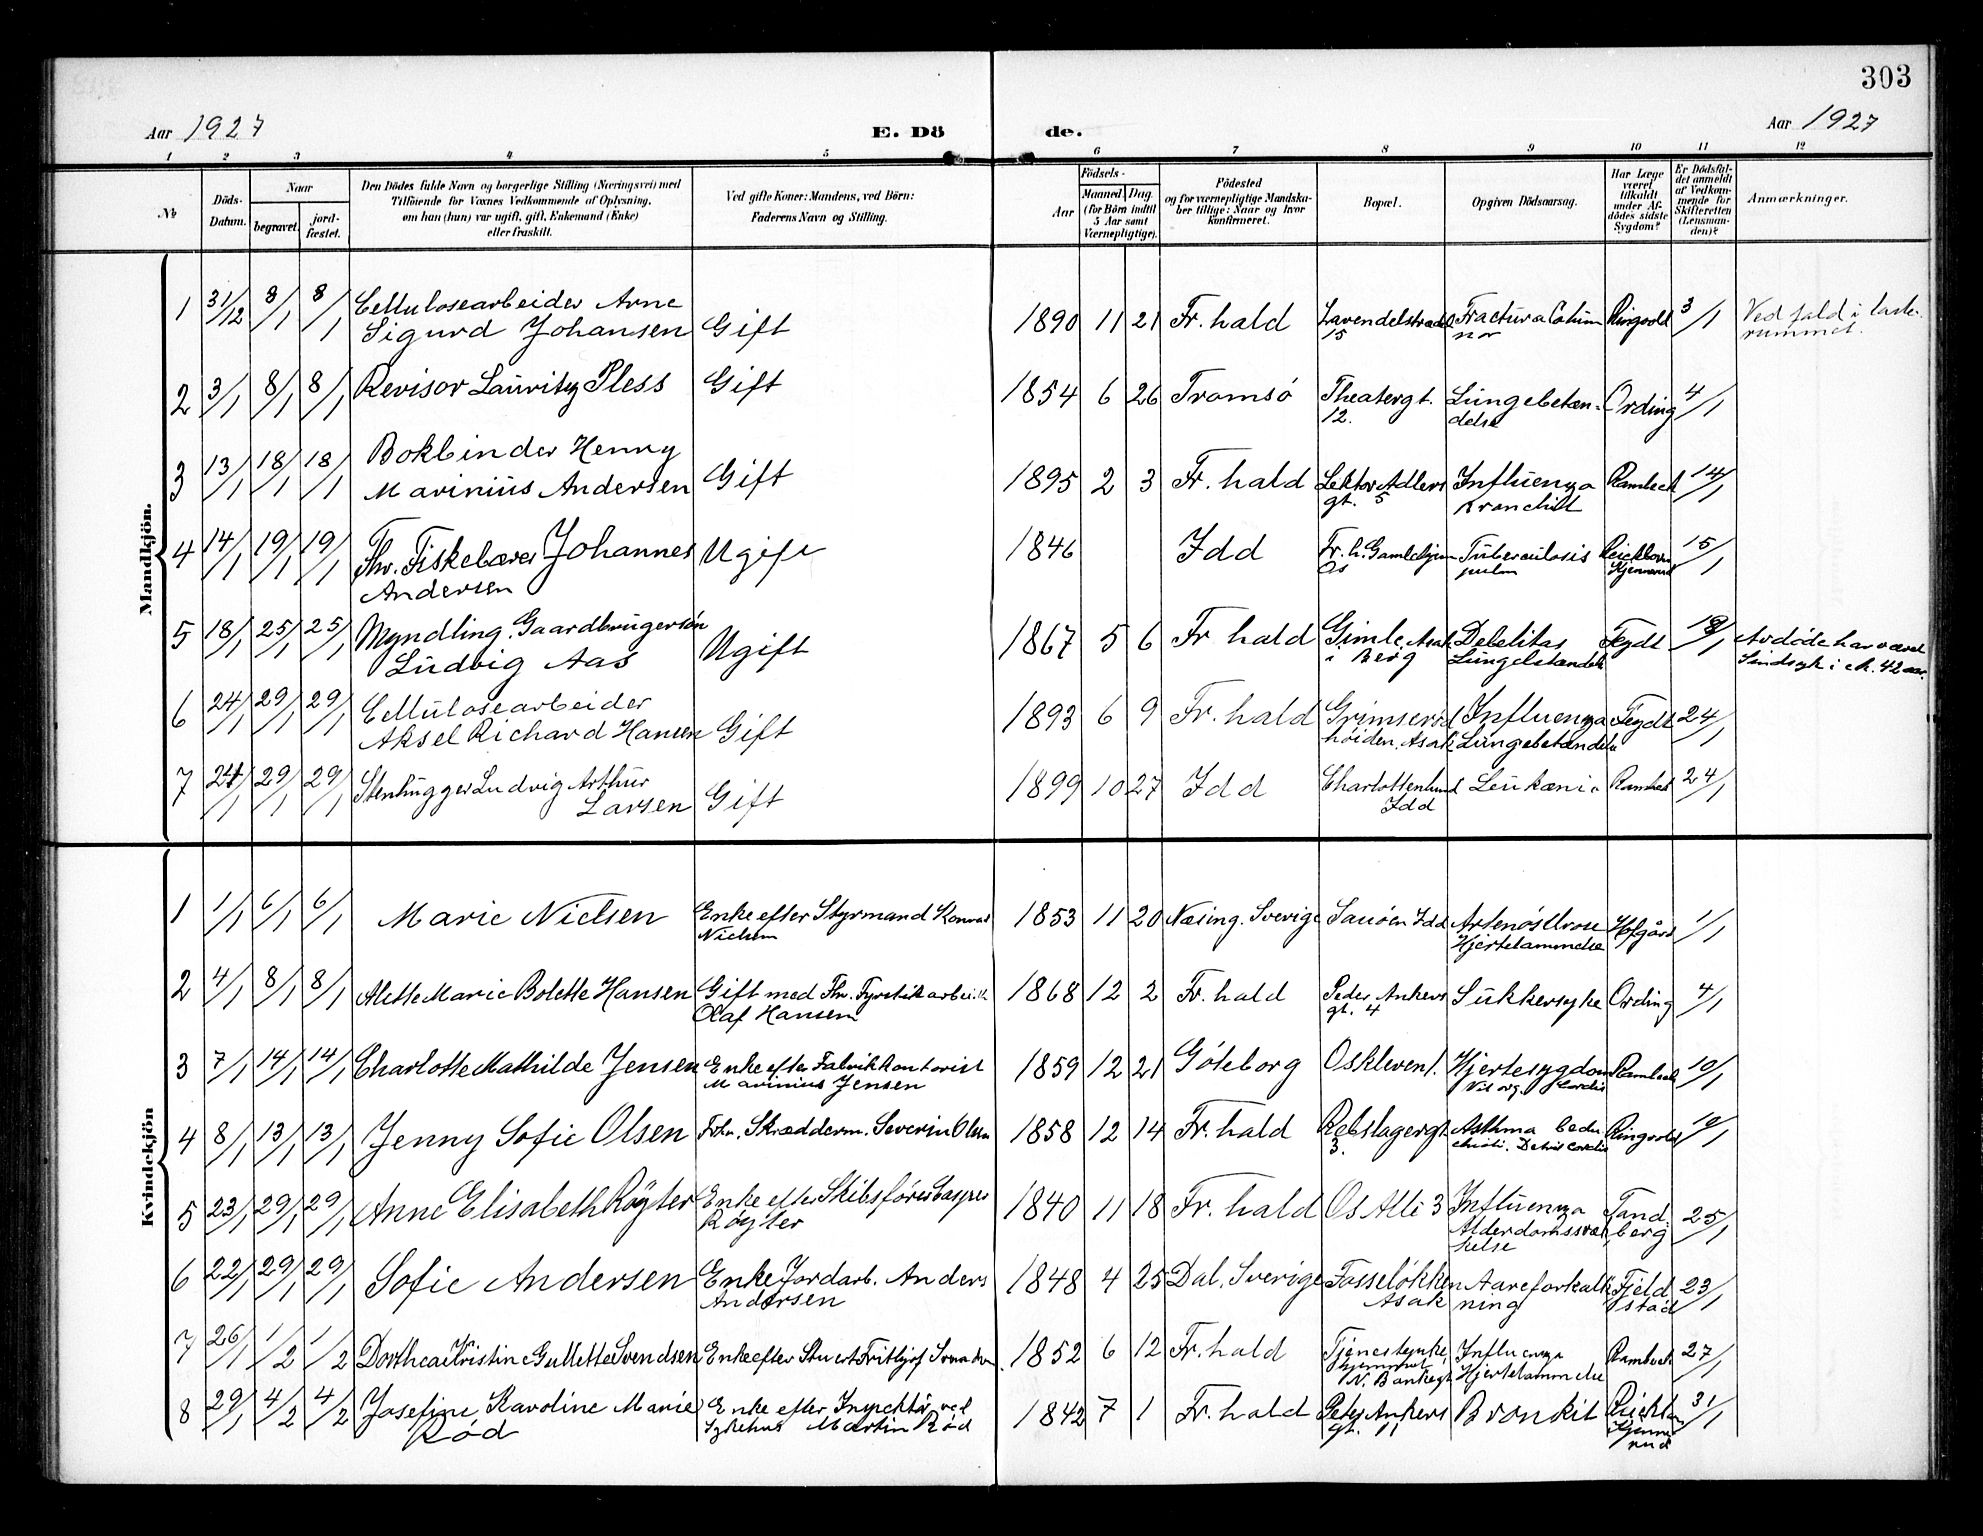 303
Aar 1927
E. Dö
de.
Aar 1927
1 2 3 4 5 6 7 8 9 10 11 12
No
Döds-Datum.
Naar
begravet.
jord-fæstet.
Den Dödes fulde Navn og borgerlige Stilling (Næringsvei) med
Tilföiende for Voxnes Vedkommende af Oplysning,
om han (hun) var ugift, gift, Enkemand (Enke)
eller fraskilt.
Ved gifte Koner: Mandens, ved Börn:
Faderens Navn og Stilling.
Födsels-
Aar
Maaned. Dag.
(for Börn indtil
5 Aar samt
Værnepligtige).
Födested
og for værnepligtige Mandska-
ber tillige: Naar og hvor
konfirmeret.
Bopæl.
Opgiven Dödsaarsag.
Har Læge
været
tilkaldt
under Af-
dödes sidste
Sygdom?
Er Dödsfal-
det anmeldt
af Vedkom-
mende for
Skifteretten
(Lensman-
den)?
Anmærkninger.
Mandkjön.
1 31/12 8/1 8/1 Cellulosearbeider Arne
Sigurd Johansen Gift 1890 11 21 Fr. hald Lavendelstrædet
15 Fractura Colum
nar Ringvold 3/1 Ved fald i laste-
rummet.
2 3/1 8/1 8/1 Revisor Lauritz Pless Gift 1854 6 26 Tromsö Theatergt.
12. Lungebetæn-
delse Ording 4/1
3 13/1 18/1 18/1 Bokbinder Henry
Marinius Andersen Gift 1895 2 3 Fr. hald Lektor Adlers
gt. 5 Influenza
Bronchitt Rambech 14/1
4 14/1 19/1 19/1 Fhv. Fiskebærer Johannes
Andersen Ugift 1846 Idd Fr. h. Gamlehjem
Os Tuberculosis
pulm 15/1
5 18/1 25/1 25/1 Myndling. Gaardbrugersön
Ludvig Aas Ugift 1867 5 6 Fr hald Gimle, Asak
i Berg Debelitas
Lungebetændelse Feydt 18/1 Avdöde har været
Sindsyk i ch. 42 aar.
6 24/1 29/1 29/1 Cellulosearbeider
Aksel Richard Hansen Gift 1893 6 9 Fr. hald Grimseröd
höiden. Asak Influenza
Lungebetændelse Feydt 24/1
7 24/1 29/1 29/1 Stenhugger Ludvig Arthur
Larsen Gift 1899 10 27 Idd Charlottenlund
Idd Leukæmi Rambech 24/1
Kvindekjön
1 1/1 6/1 6/1 Marie Nielsen Enke efter Styrmand Konrad
Nielsen 1853 11 20 Næsing. Sverige Sauöen Idd
Hjertelammelse Hofgård 1/1
2 4/1 8/1 8/1 Alette Marie Bolette Hansen Gift med Fhv. Fyrstikarbeider
Olaf Hansen 1868 12 2 Fr. hald Peder Ankers
gt. 4 Sukkersyke Ording 4/1
3 7/1 14/1 14/1 Charlotte Mathilde Jensen Enke efter Fabrikkontorist
Marinius Jensen 1859 12 21 Göteborg Oskleven 1. Hjertesygdom
Vit org. Cordis Rambech 10/1
4 8/1 13/1 13/1 Jenny Sofie Olsen Fhv. Skrædderm. Severin Olsen 1858 12 14 Fr. hald Rebslagergt.
3. Asthma Ringvold 10/1
5 23/1 29/1 29/1 Anne Elisabeth Röyter Enke efter Skibsförer Casper
Röyter 1840 11 18 Fr. hald Os Alle 3 Influenza
Alderdomssvæk
kelse Tand-
berg 25/1
6 22/1 29/1 29/1 Sofie Andersen Enke Jordarb. Anders
Andersen 1848 4 25 Dal. Sverige Fosselökken
Asak Aareforkalk
ning Fjeld
stad 23/1
7 26/1 1/2 1/2 Dorthea Kristine Gullette Svendsen Enke efter Stuert Fritjof Svendsen 1852 6 12 Fr. hald Tjenestepike
hjemmet
N. Bankegt Influenza
Hjertelammelse Rambech 27/1
8 29/1 4/2 4/2 Josefine Karoline Marie
Röd Enke efter Inspektör ved
Sykehus Martin Röd 1842 7 1 Fr. hald Peder Ankers
gt. 11 Bronkit 31/1